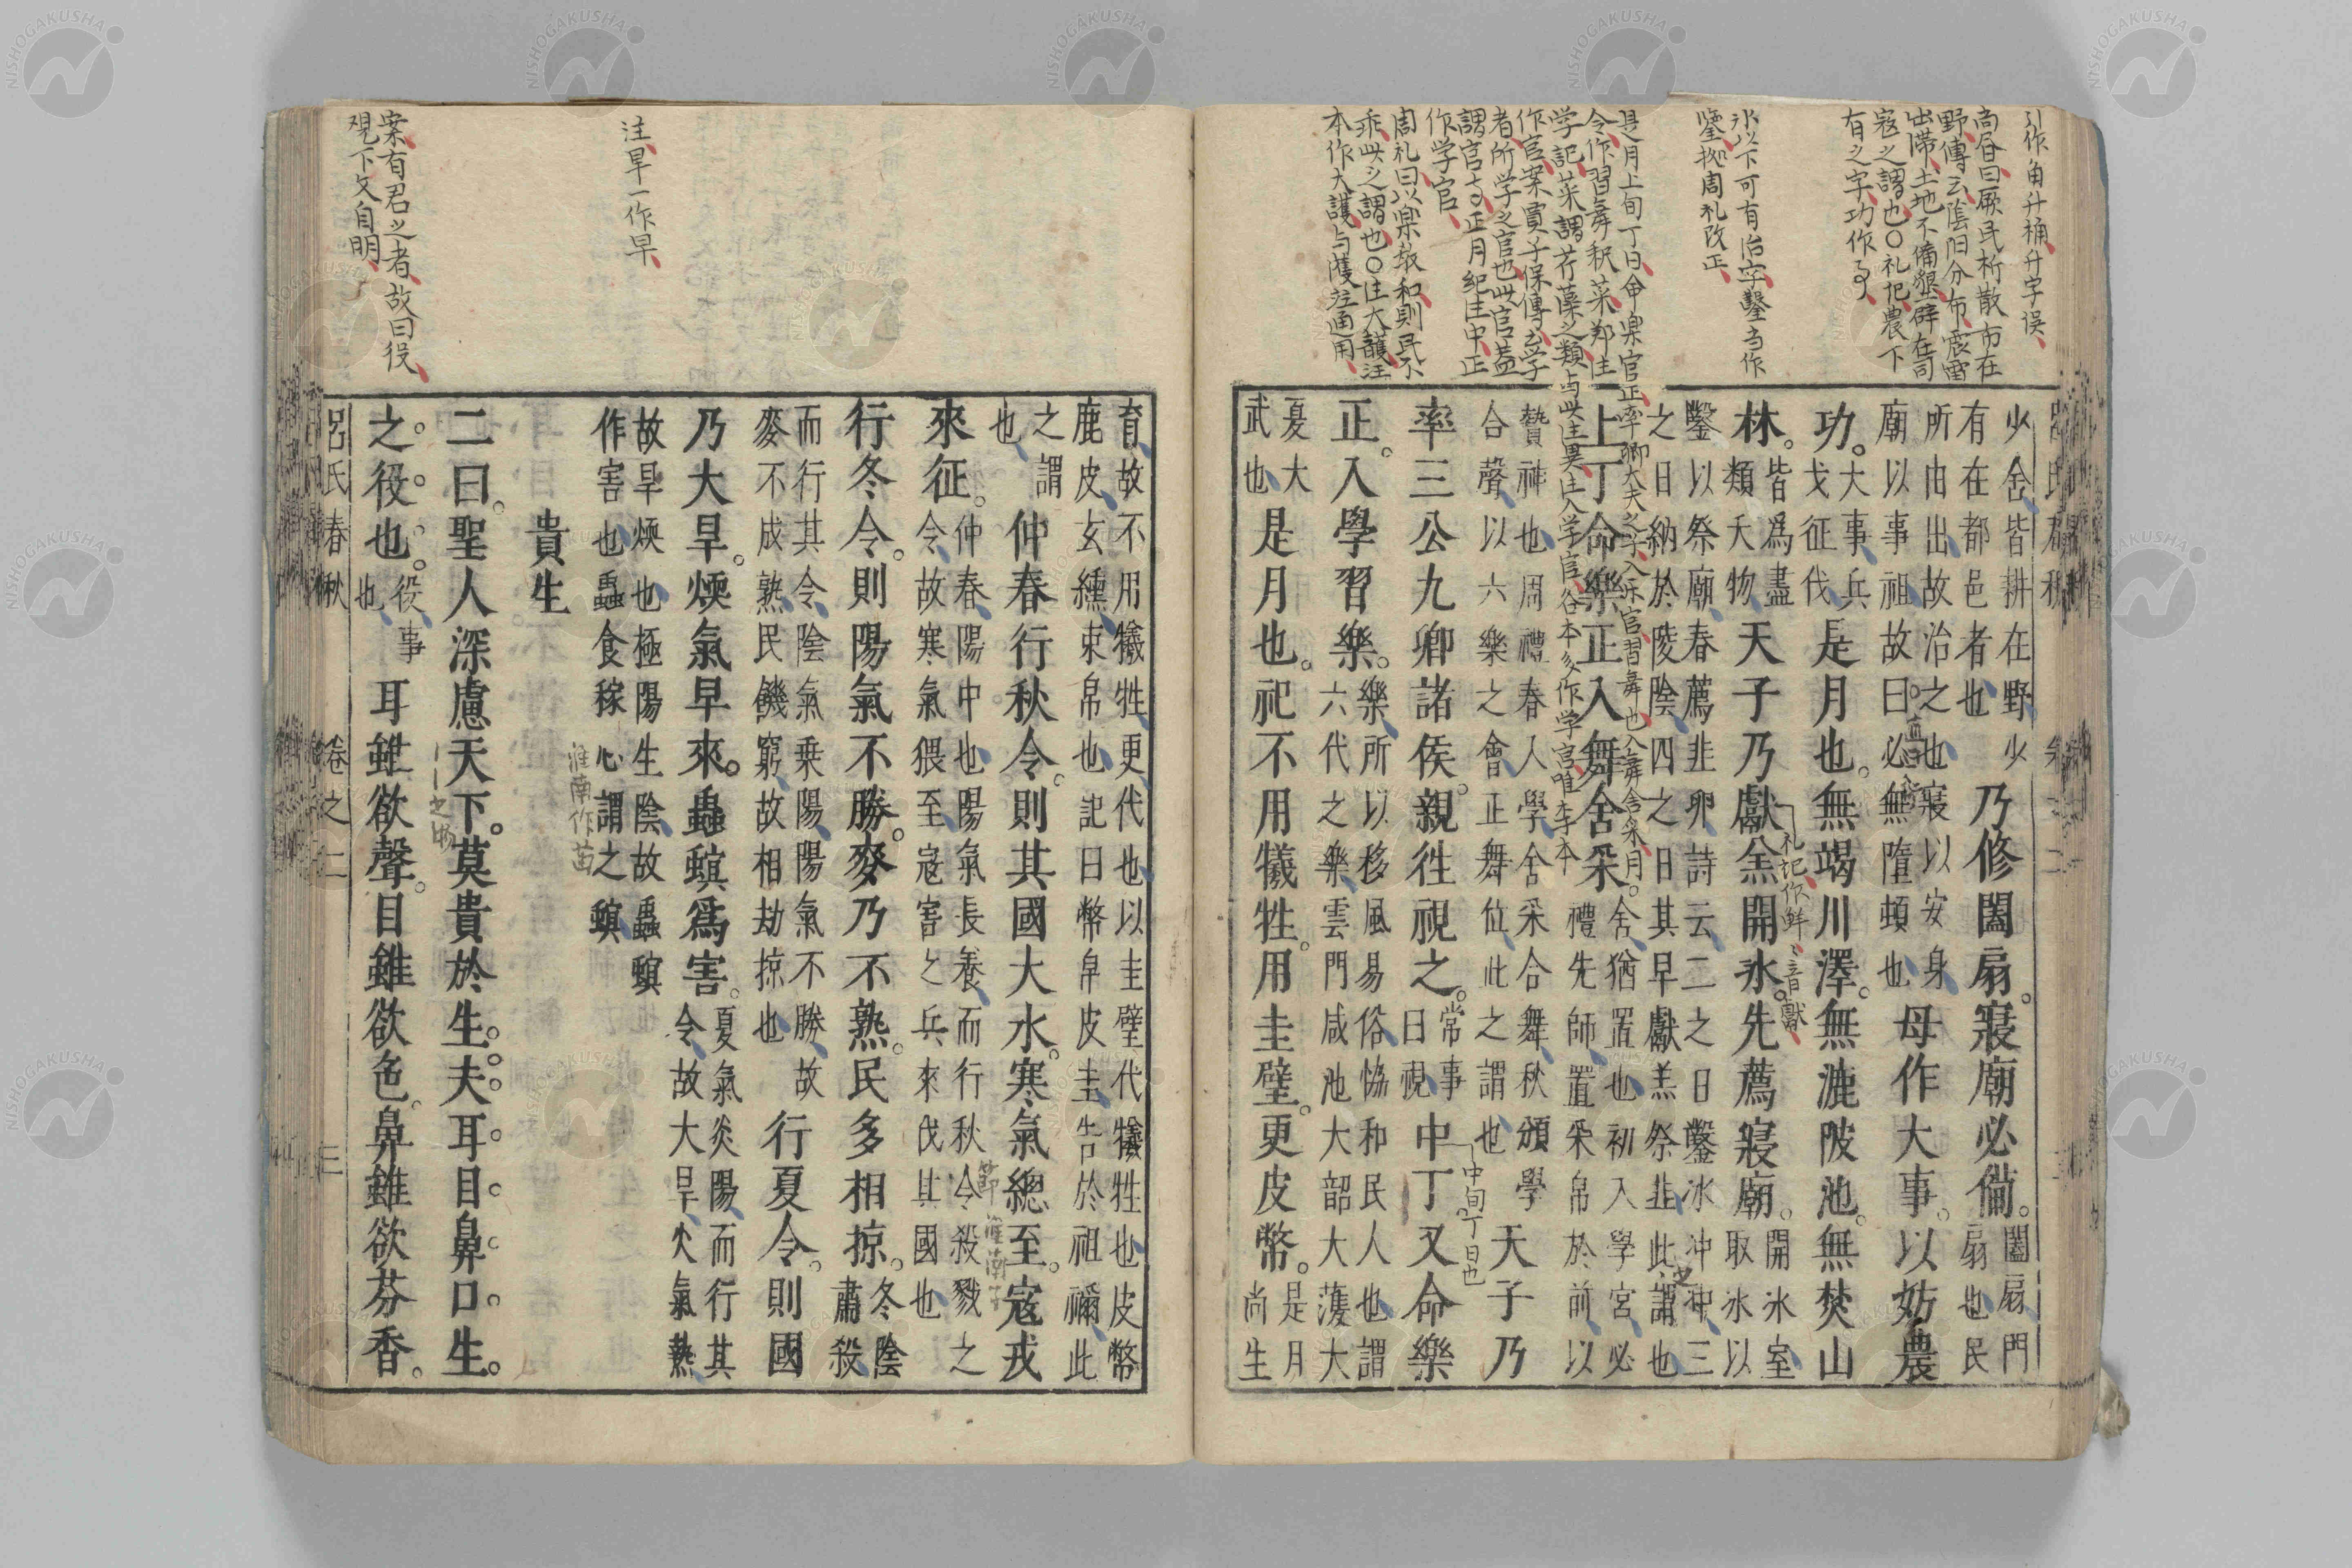 引作角升桶升字误
尚昏曰厥民析散布在
野傳云陰阳分布震雷
出滞土地不備墾辟在司
寇之謂也〇礼记農下
有之字功作事
氷以下可有治字鑿當作
鑒拠周礼改正
是月上旬丁日命楽官正率卿大夫之子入学官習舞也入舞舍采月
令作習舞釈菜鄭注
学記菜謂芹藻之類与此注異注入学官谷本多作学宮唯李本
作官案賈子保傳云学
者所学之官也此官盖
謂官与正月紀注中正
作学官
周礼曰以楽教和則民不
乖此之謂也〇注大護汪
本作大護与濩注通用
少舍皆耕在野少有在都邑者也乃修闔扇。寢廟必備。闔扇門扇也民
所由出故治之也寢以安身廟以事祖故曰必無墮頓也母作大事。以妨農
功。大事兵戈征伐是月也。無竭川澤。無漉陂池。無焚山
林。皆爲盡類夭物天子乃獻羔開氷。先薦寢廟。開氷室取氷以
礼記作鮮音獻
鑿以祭廟春薦韭卵詩云二之日鑿冰沖沖三之日納於陵陰四之日其早獻羔祭韭此之謂也
上丁命樂正入舞舍采。舍猶置也初入學宮必禮先師置采帛於前以
贊神也周禮春人學舍采合舞秋頒學合聲以六樂之會正舞位此之謂也天子乃
率三公九卿諸侯。親徃視之。常事曰視中丁又命樂
中旬丁日也
正。入學習樂。樂所以移風易俗恊和民人也謂六代之樂雲門咸池大韶大濩大
夏大武也是月也。祀不用犧牲。用圭璧。更皮幣。是月尚生
注旱一作早
案有君之者故曰役
覌下文自明
育故不用犧牲更代也以圭璧代犧牲也皮幣鹿皮玄纁束帛也記曰幣帛皮圭告於祖禰此
之謂也仲春行秋令。則其國大水。寒氣總至。寇戎
來征。仲春陽中也陽氣長養而行秋令殺戮之令故寒氣猥至寇害之兵來伐其國也
節淮南子
行冬令。則陽氣不勝。麥乃不熟。民多相掠。冬陰肅殺
而行其令陰氣乗陽陽氣不勝故麥不成熟民饑窮故相劫掠也行夏令。則國
乃大旱。煗氣早來。蟲螟爲害。夏氣炎陽而行其令故大旱火氣熱
故旱煗也極陽生陰故蟲螟作害也蟲食稼心謂之螟
淮南作苗
貴生
二曰。聖人深慮天下。莫貴於生。夫耳目鼻口。生
之物
之役也。役事也耳雖欲聲。目雖欲色。鼻雖欲芬香。
呂氏春秋 卷之二 三